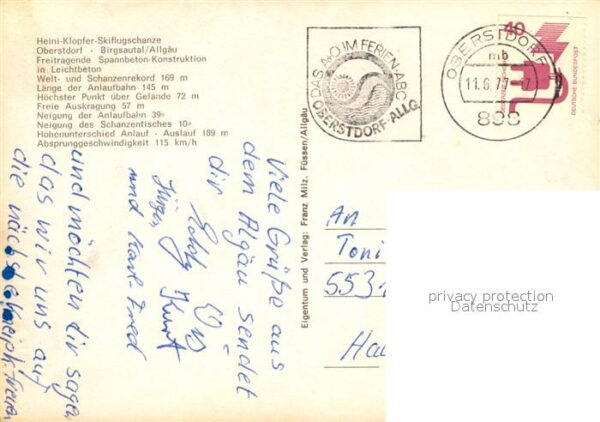 Heini-Klopfer-Skiflugschanze
Oberstdorf - Birgsautal/Allgäu
Freitragende Spannbeton-Konstruktion
in Leichtbeton
Welt- und Schanzenrekord 169 m
Länge der Anlaufbahn 145 m
Höchster Punkt über Gelände 72 m
Freie Auskragung 57 m
Neigung der Anlaufbahn 39°
Neigung des Schanzentisches 10°
Höhenunterschied Anlauf - Auslauf 189 m
Absprunggeschwindigkeit 115 km/h
DAS A+O IM FERIEN-ABC
OBERSTDORF-ALLG.
OBERSTDORF
mb
11.6.77-17
898
40
DEUTSCHE BUNDESPOST
Eigentum und Verlag: Franz Milz, Füssen/Allgäu
Viele Grüße aus
dem Algäu sendet
dir
Kurt
und Karl. Fred
und möchten dir sagen
das wir uns auf
die nächste
An
Toni
553
Ha
privacy protection
Datenschutz